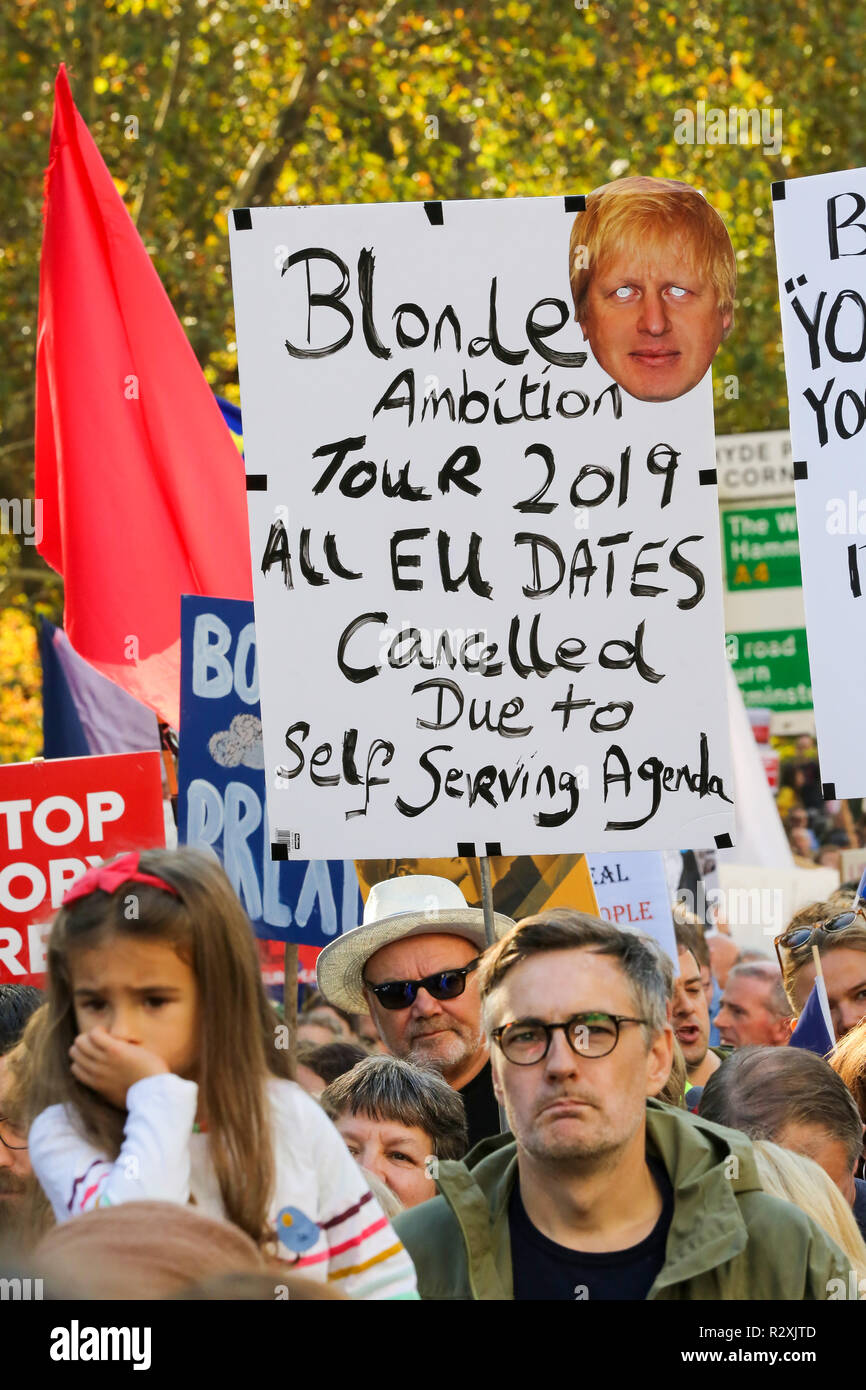 Blonde
Ambition
Tour 2019
All EU DATES
Cancelled
Due to
Self Serving Agenda
B
"YO
YO
HYDE P
CORN
The W
Hamm
A4
road
urn
minst
BO
BREX
TOP
ORY
RE
EAL
EOPLE
alamy stock photo
R2XJTD
www.alamy.com